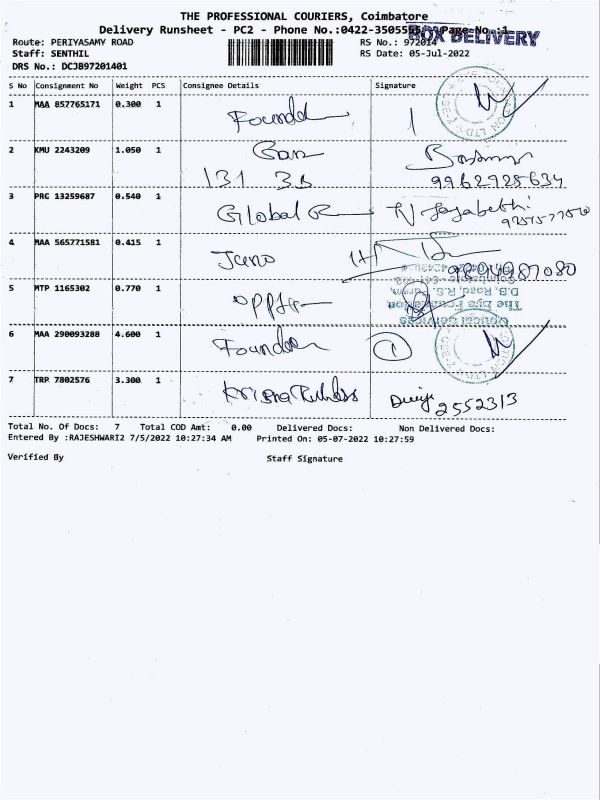 THE PROFESSIONAL COURIERS, Coimbatore
Delivery Runsheet - PC2 - Phone No.:0422-3505555 Page No. 1
BOX DELIVERY
Route: PERIYASAMY ROAD
Staff: SENTHIL
DRS No.: DCJB97201401
RS No.: 972014
RS Date: 05-Jul-2022
S No Consignment No Weight PCS Consignee Details Signature
1 MAA 857765171 0.300 1
2 KMU 2243209 1.050 1
131 3B 9962928634
3 PRC 13259687 0.540 1 Global
4 MAA 565771581 0.415 1 Juno
5 MTP 1165302 0.770 1
The Eye Foundation,
D.B. Road, R.S. Puram,
6 MAA 290093280 4.600 1 Founder 1
7 TRP 7802576 3.300 1 Krisna
2552313
Total No. Of Docs: 7 Total COD Amt: 0.00 Delivered Docs: Non Delivered Docs:
Entered By :RAJESHWARI2 7/5/2022 10:27:34 AM Printed On: 05-07-2022 10:27:59
Verified By Staff Signature